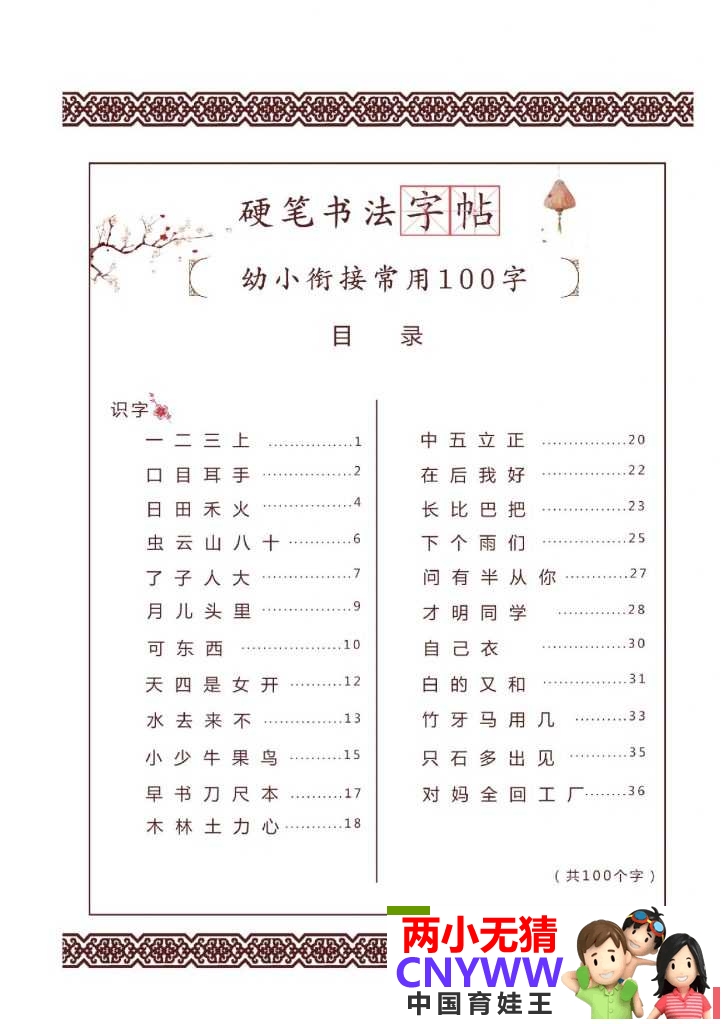 硬笔书法字帖
幼小衔接常用100字
目 录
识字
一 二 三 上 ................1
口 目 耳 手 ................2
日 田 禾 火 ................4
虫 云 山 八 十 ............6
了 子 人 大 ................7
月 儿 头 里 ................9
可 东 西 ...................10
天 四 是 女 开 ..........12
水 去 来 不 ..............13
小 少 牛 果 鸟 ..........15
早 书 刀 尺 本 ..........17
木 林 土 力 心 ...........18
中 五 立 正 ................20
在 后 我 好 ................22
长 比 巴 把 ................23
下 个 雨 们 ................25
问 有 半 从 你 ............27
才 明 同 学 .............28
自 己 衣 ................30
白 的 又 和 ................31
竹 牙 马 用 几 ..........33
只 石 多 出 见 ...........35
对 妈 全 回 工 厂 ........36
（共100个字）
两小无猜
CNYWW
中国育娃王